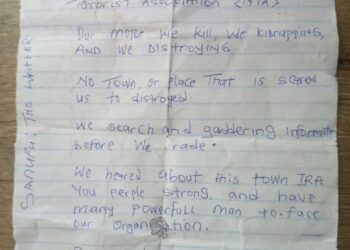 Terorist Association (ITIA)
Our motor. We kill, We kidnapping,
AND We DISTROYING
NO TOWN, or PLACE THAT is scared
us to distroyed.
We search and gaddering informat
before We rade.
We heared about this town IRA
You perple strong and have
many powerfull man to face
our Organisation.
SANUFU: THE WRITTER